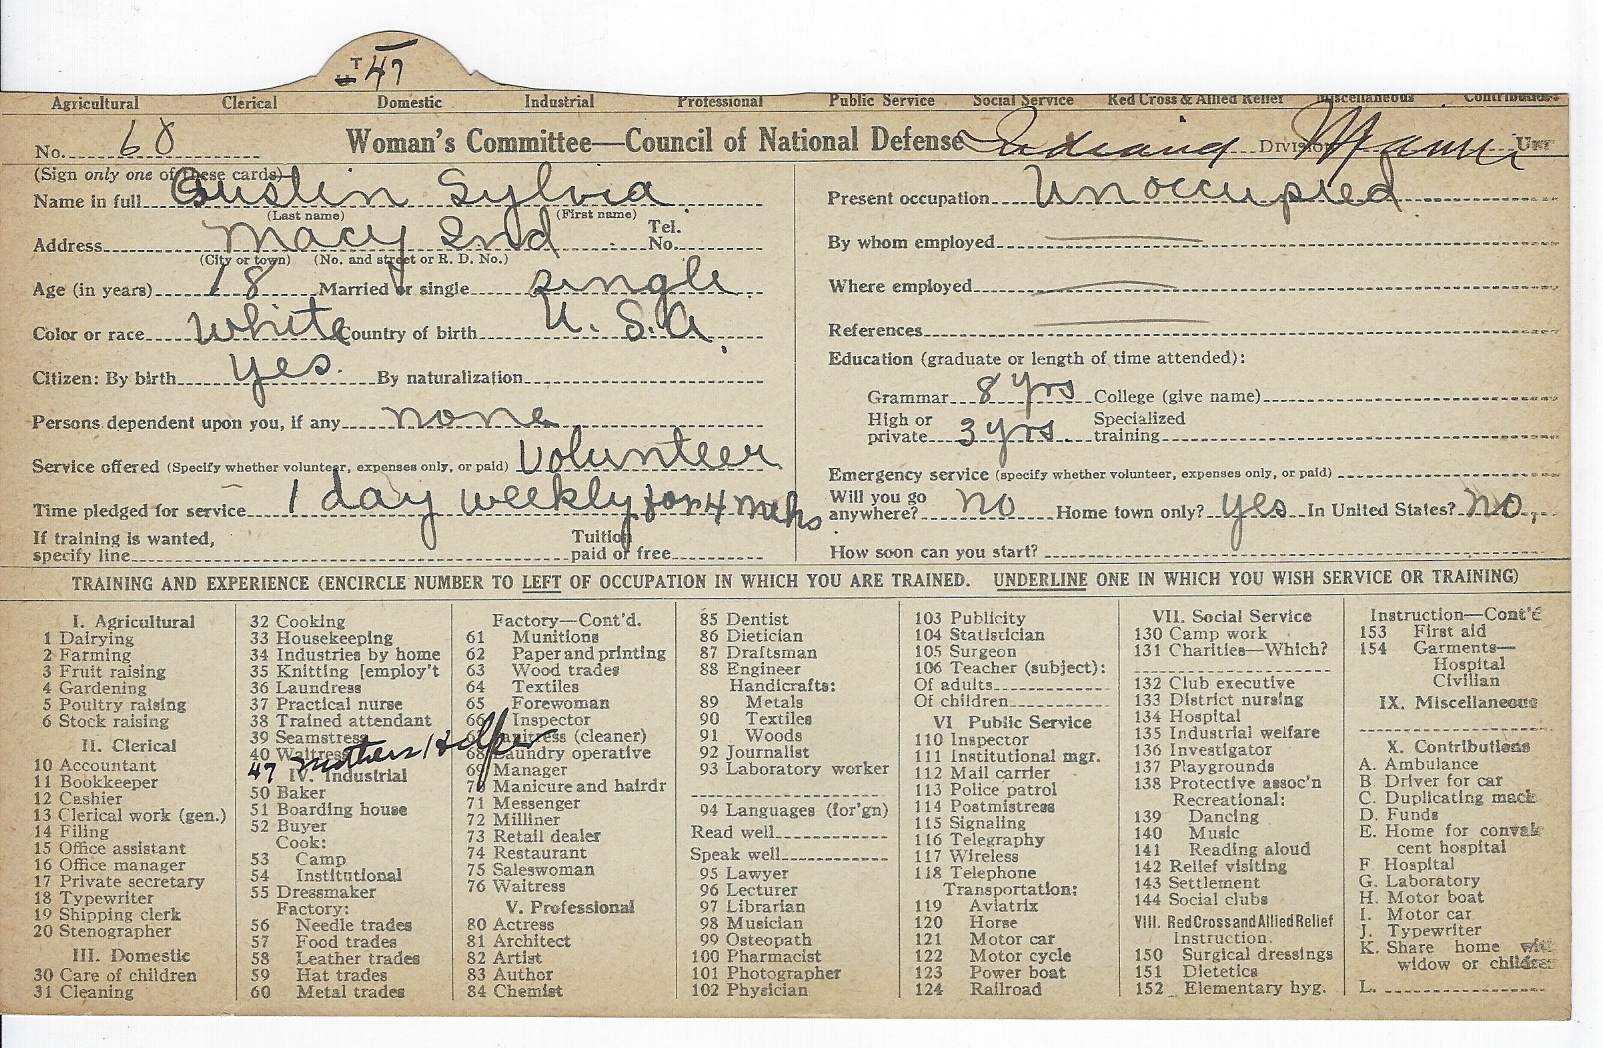 T 47
Agricultural Clerical Domestic Industrial Professional Public Service Social Service Red Cross & Allied Relief Miscellaneous Contributions
No. 68 Woman's Committee—Council of National Defense Indiana Division Miami Unit
(Sign only one of these cards)
Name in full Austin Sylvia
(Last name) (First name)
Address Macy Ind Tel. No.
(City or town) (No. and street or R. D. No.)
Age (in years) 18 Married or single single
Color or race White Country of birth U. S. A.
Citizen: By birth yes. By naturalization
Persons dependent upon you, if any none
Service offered (Specify whether volunteer, expenses only, or paid) Volunteer
Time pledged for service 1 day weekly for 4 mths
If training is wanted, specify line Tuition paid or free
Present occupation Unoccupied
By whom employed
Where employed
References
Education (graduate or length of time attended):
Grammar 8 yrs College (give name)
High or private 3 yrs Specialized training
Emergency service (specify whether volunteer, expenses only, or paid)
Will you go anywhere? no Home town only? yes In United States? no,
How soon can you start?
TRAINING AND EXPERIENCE (ENCIRCLE NUMBER TO LEFT OF OCCUPATION IN WHICH YOU ARE TRAINED. UNDERLINE ONE IN WHICH YOU WISH SERVICE OR TRAINING)
I. Agricultural
1 Dairying
2 Farming
3 Fruit raising
4 Gardening
5 Poultry raising
6 Stock raising
II. Clerical
10 Accountant
11 Bookkeeper
12 Cashier
13 Clerical work (gen.)
14 Filing
15 Office assistant
16 Office manager
17 Private secretary
18 Typewriter
19 Shipping clerk
20 Stenographer
III. Domestic
30 Care of children
31 Cleaning
32 Cooking
33 Housekeeping
34 Industries by home
35 Knitting [employ't
36 Laundress
37 Practical nurse
38 Trained attendant
39 Seamstress
40 Waitress
47 Mothers Helper
IV. Industrial
50 Baker
51 Boarding house
52 Buyer
Cook:
53 Camp
54 Institutional
55 Dressmaker
Factory:
56 Needle trades
57 Food trades
58 Leather trades
59 Hat trades
60 Metal trades
Factory—Cont'd.
61 Munitions
62 Paper and printing
63 Wood trades
64 Textiles
65 Forewoman
66 Inspector
67 Janitress (cleaner)
68 Laundry operative
69 Manager
70 Manicure and hairdr
71 Messenger
72 Milliner
73 Retail dealer
74 Restaurant
75 Saleswoman
76 Waitress
V. Professional
80 Actress
81 Architect
82 Artist
83 Author
84 Chemist
85 Dentist
86 Dietician
87 Draftsman
88 Engineer
Handicrafts:
89 Metals
90 Textiles
91 Woods
92 Journalist
93 Laboratory worker
94 Languages (for'gn)
Read well
Speak well
95 Lawyer
96 Lecturer
97 Librarian
98 Musician
99 Osteopath
100 Pharmacist
101 Photographer
102 Physician
103 Publicity
104 Statistician
105 Surgeon
106 Teacher (subject):
Of adults
Of children
VI Public Service
110 Inspector
111 Institutional mgr.
112 Mail carrier
113 Police patrol
114 Postmistress
115 Signaling
116 Telegraphy
117 Wireless
118 Telephone
Transportation:
119 Aviatrix
120 Horse
121 Motor car
122 Motor cycle
123 Power boat
124 Railroad
VII. Social Service
130 Camp work
131 Charities—Which?
132 Club executive
133 District nursing
134 Hospital
135 Industrial welfare
136 Investigator
137 Playgrounds
138 Protective assoc'n
Recreational:
139 Dancing
140 Music
141 Reading aloud
142 Relief visiting
143 Settlement
144 Social clubs
VIII. Red Cross and Allied Relief
Instruction.
150 Surgical dressings
151 Dietetics
152 Elementary hyg.
Instruction—Cont'd
153 First aid
154 Garments—
Hospital
Civilian
IX. Miscellaneous
X. Contributions
A. Ambulance
B. Driver for car
C. Duplicating mach.
D. Funds
E. Home for convales
cent hospital
F Hospital
G. Laboratory
H. Motor boat
I. Motor car
J. Typewriter
K. Share home with
widow or children
L.